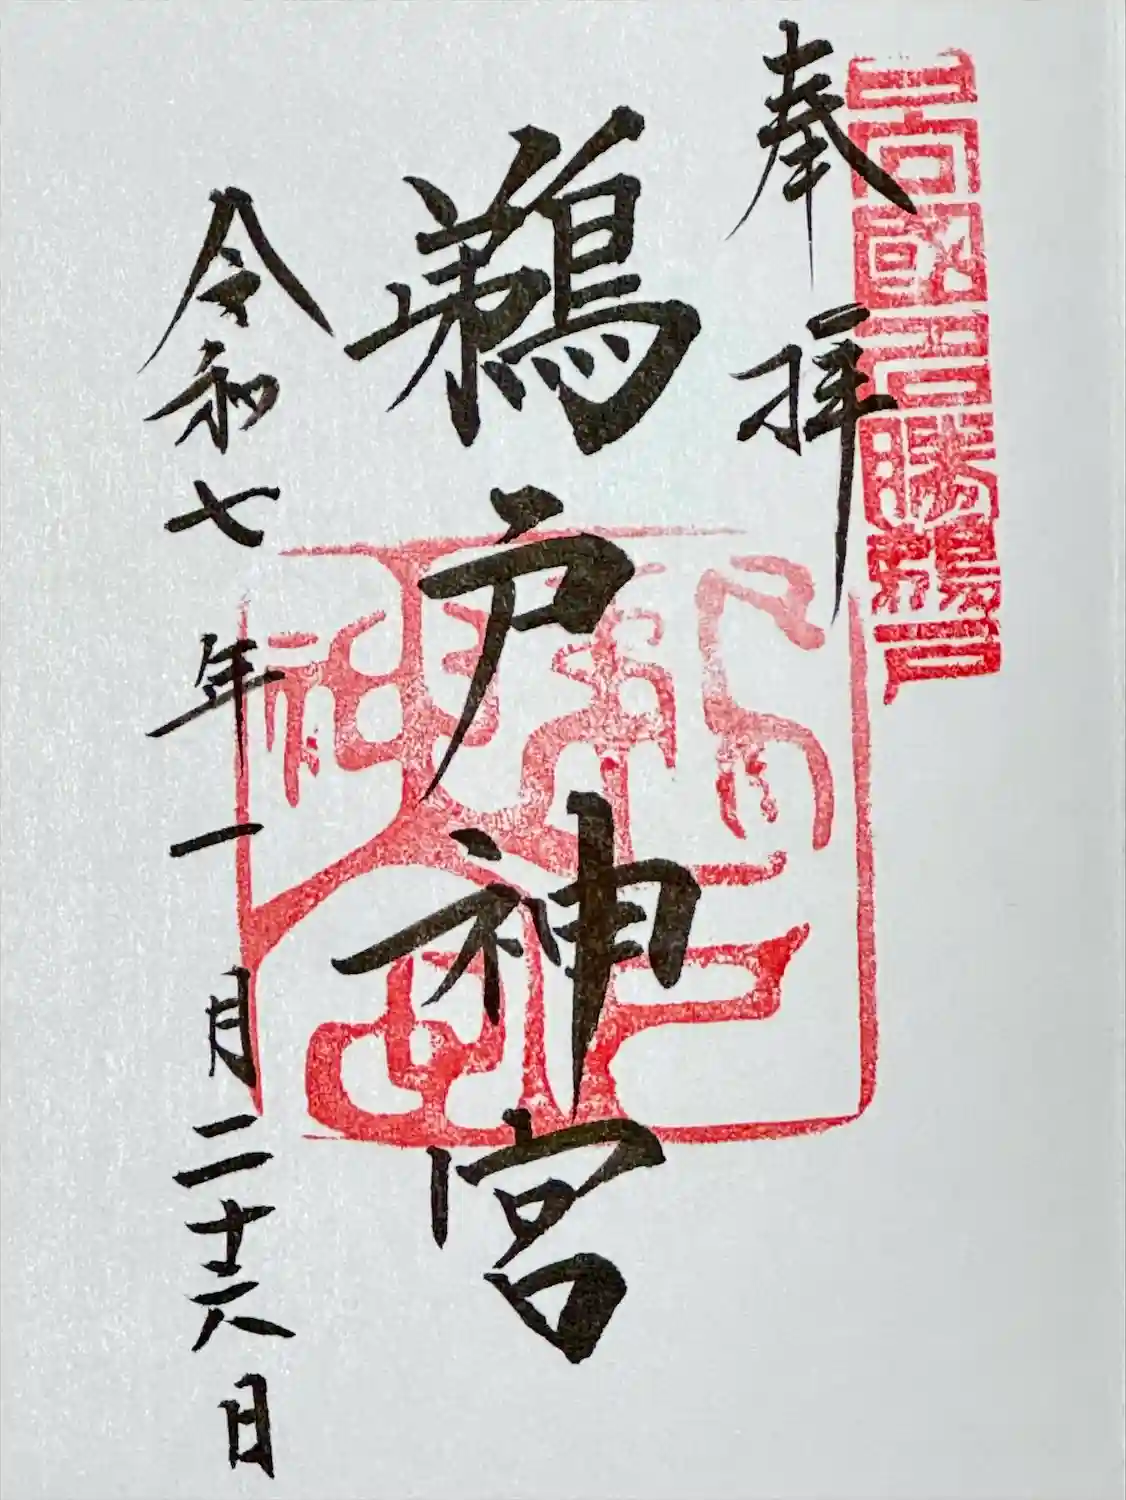 日向國名勝鵜戸
奉拝
鵜戸神宮
令和七年一月二十六日